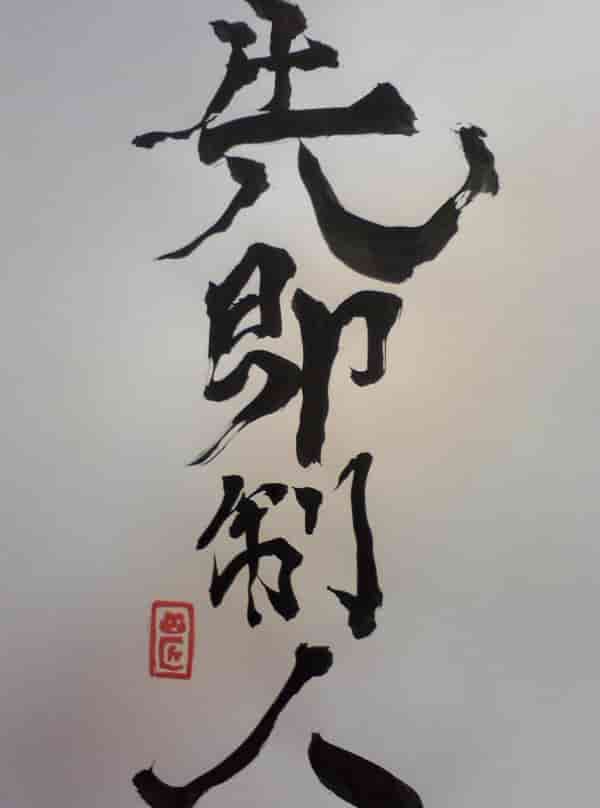 先即制人